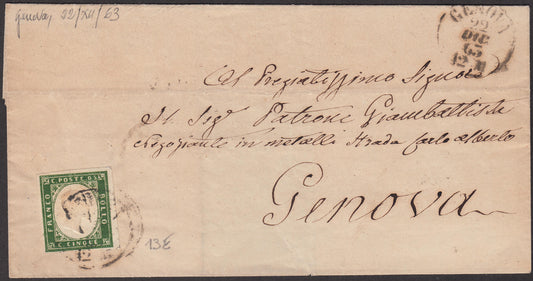 Genova, 22/XII/63
GENOVA
22
DIC
63
12 M
Al Pregiatissimo Signor
Il Sig.r Patrone Giambattista
Negoziante in metalli Strada Carlo Alberto
Genova
C. POSTE. 05
FRANCO
BOLLO
C. CINQUE
12
13E